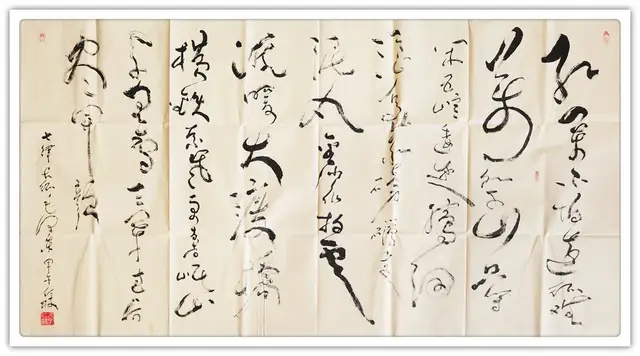 红军不怕远征难
萬水千山只等
闲五嶺逶迤腾细
浪乌蒙磅礴走
泥丸金沙水拍云
崖暖大渡橋
横铁索寒更喜岷山
千里雪三军过后
尽开颜
七律长征毛泽东甲午